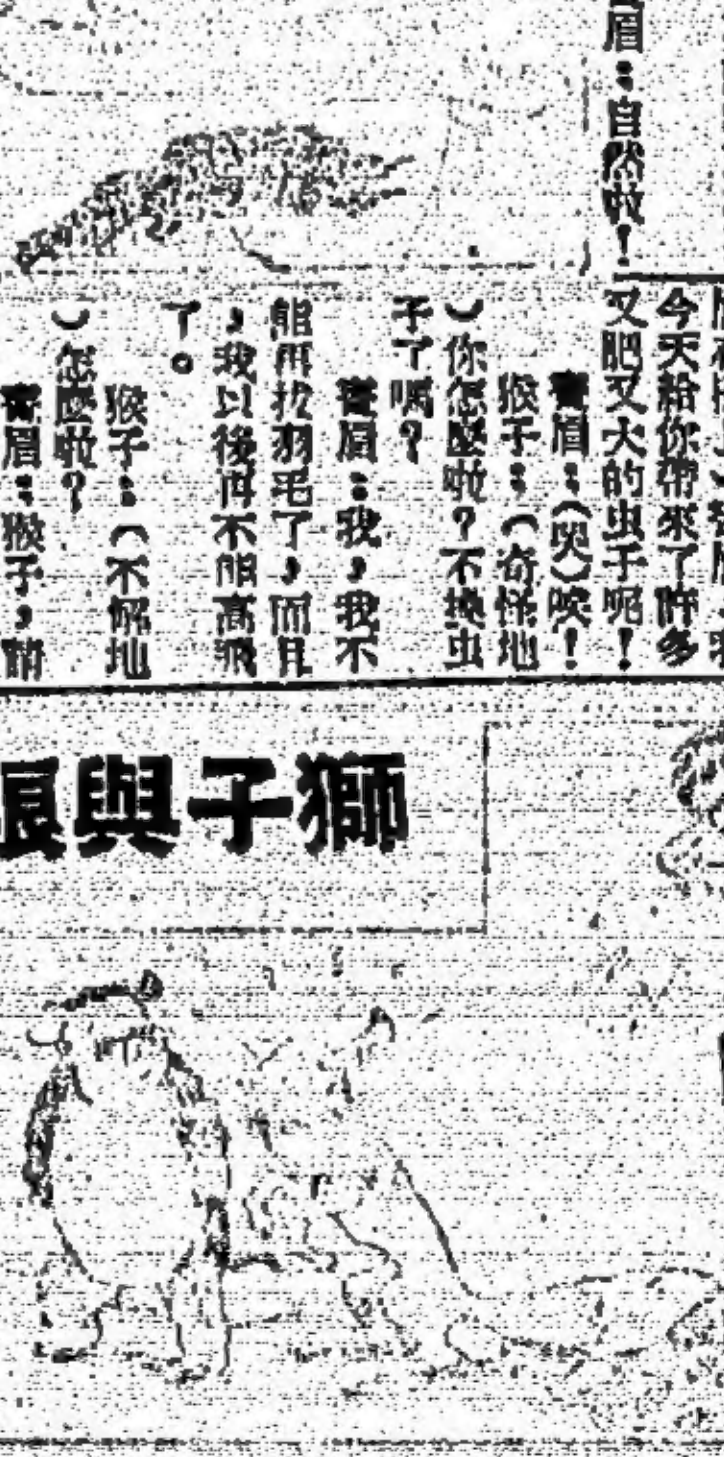 眉：自然啦！
今天給你帶來了許多
又肥又大的虫子呢！
眉：（哭）唉！
猴子：（奇怪地
）你怎麼啦？不換虫
子了嗎？
眉：我，我不
能再拔羽毛了，而且
，我以後再不能高飛
了。
猴子：（不解地
）怎麼啦？
眉：猴子，請
獅子與